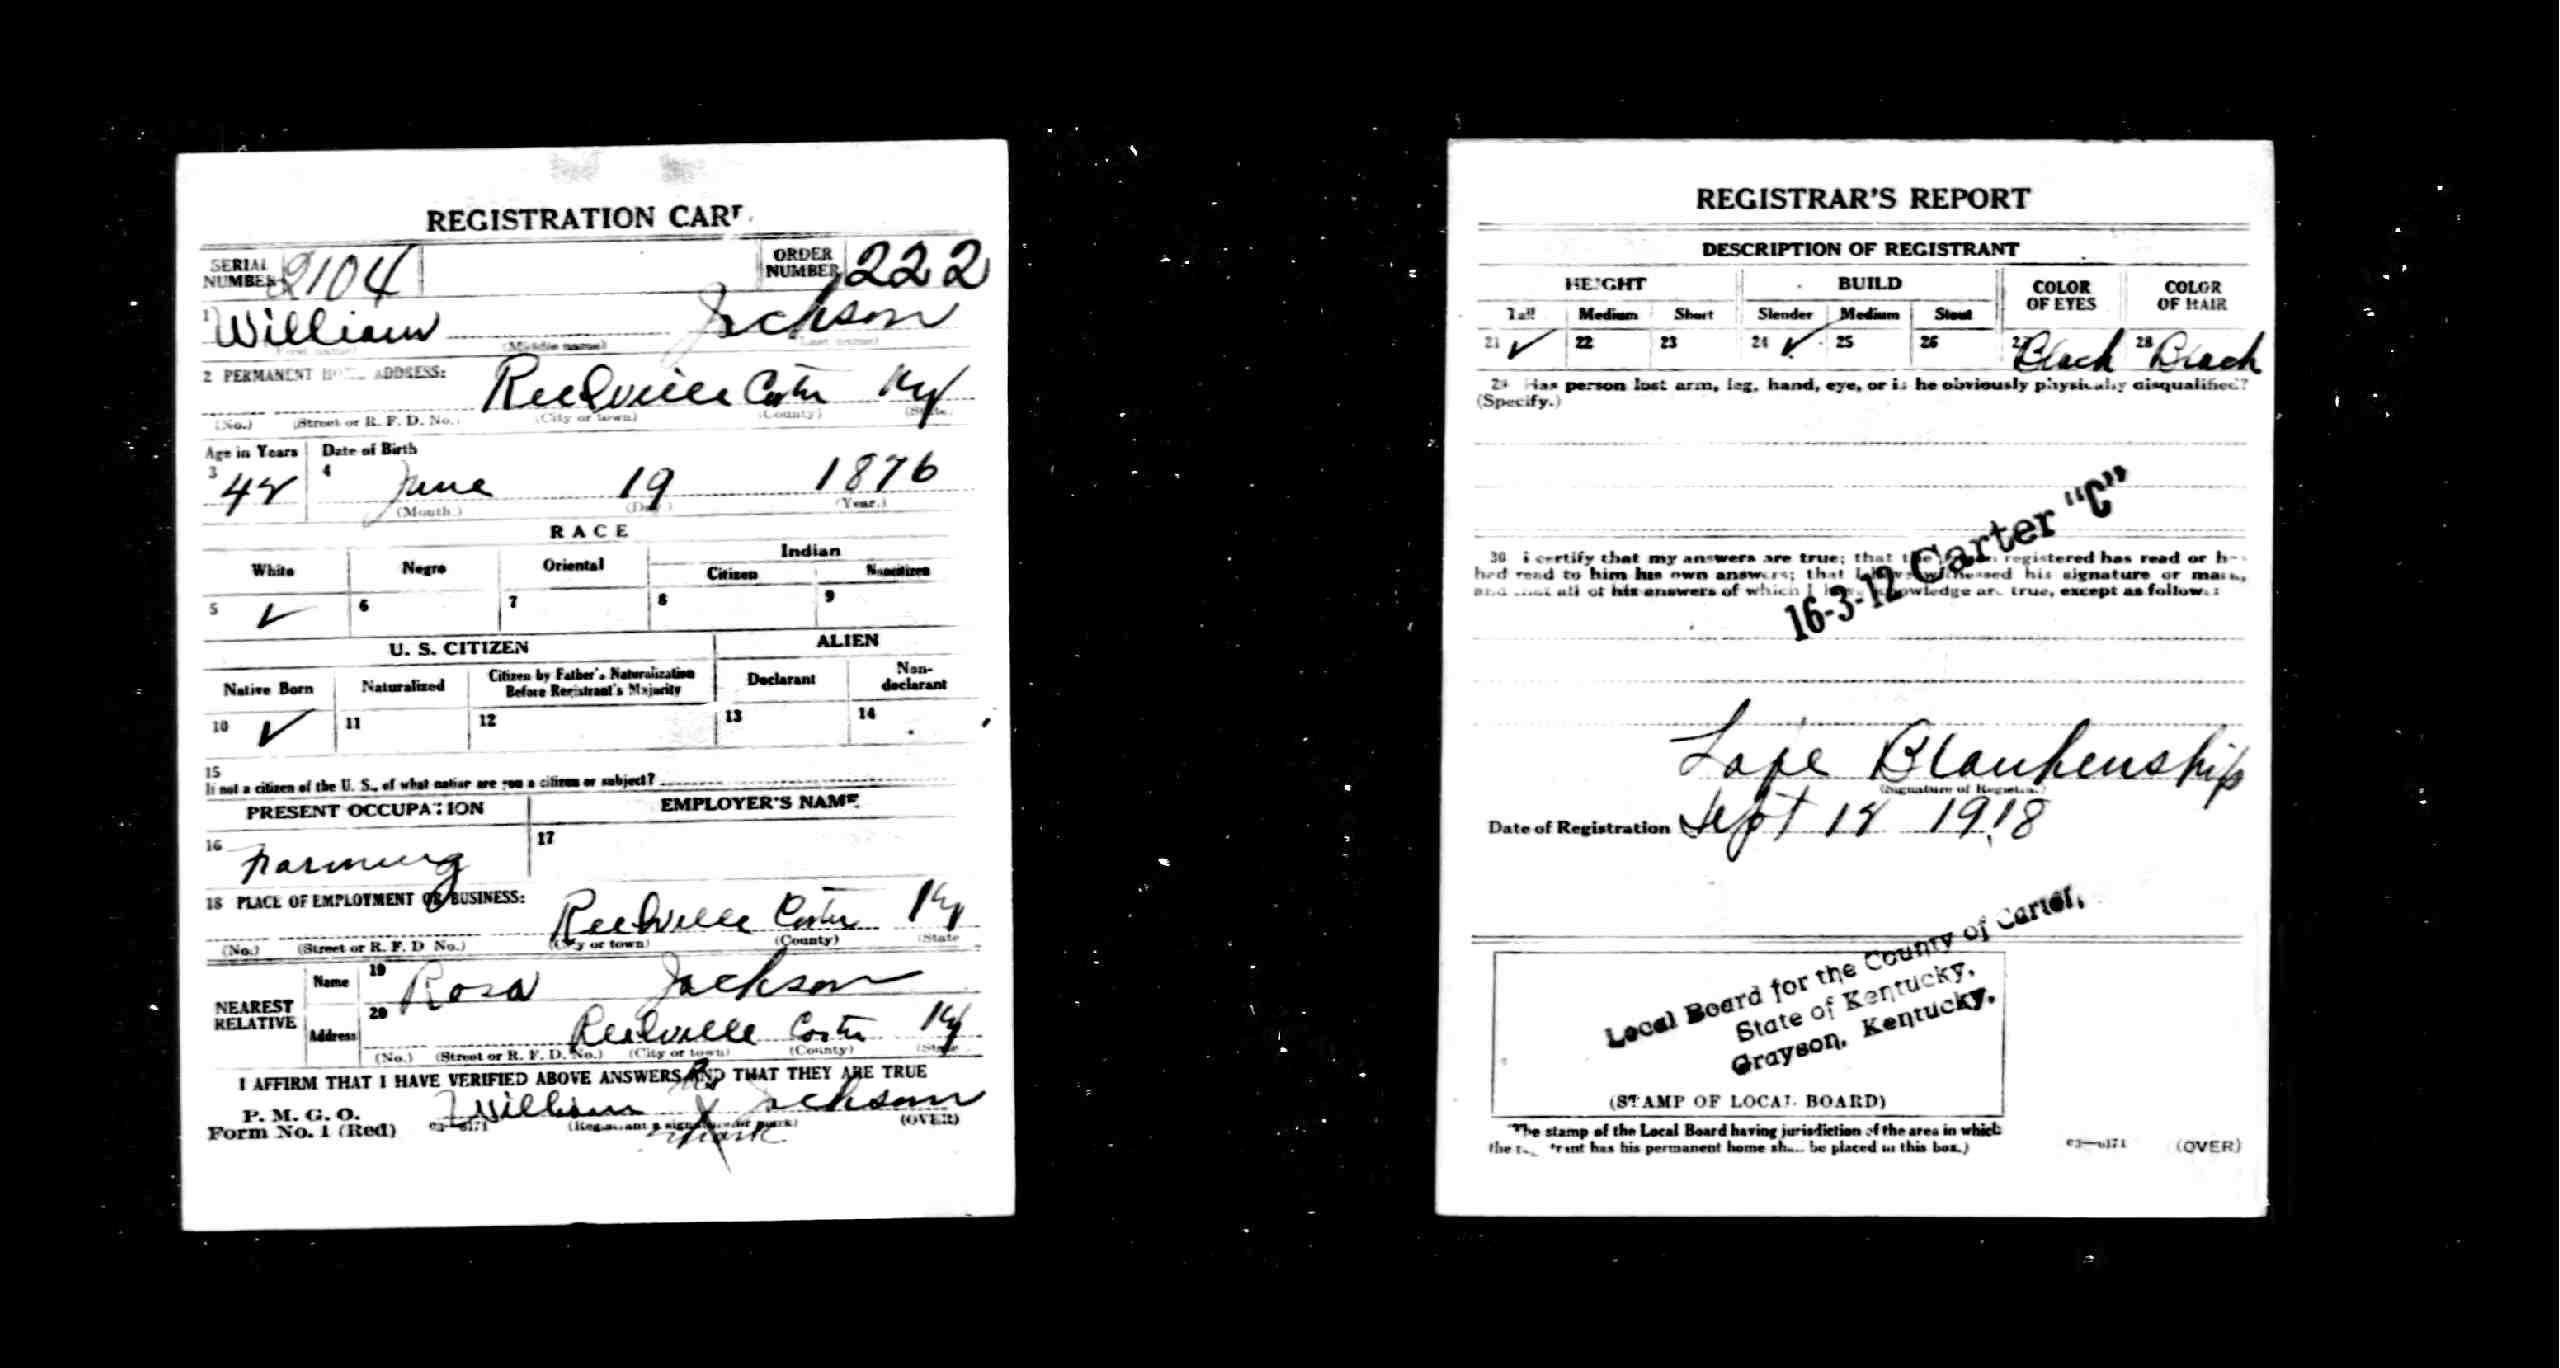 REGISTRATION CARD
SERIAL NUMBER 2104
ORDER NUMBER 222
1 William Jackson
(First name) (Middle name) (Last name)
2 PERMANENT HOME ADDRESS:
Reedville Carter Ky
(No.) (Street or R. F. D. No.) (City or town) (County) (State)
Age in Years Date of Birth
3 42 4 June 19 1876
(Month.) (Day.) (Year.)
RACE
White Negro Oriental Indian
Citizen Noncitizen
5 ✓ 6 7 8 9
U. S. CITIZEN ALIEN
Native Born Naturalized Citizen by Father's Naturalization Before Registrant's Majority Declarant Non-declarant
10 ✓ 11 12 13 14
15
If not a citizen of the U. S., of what nation are you a citizen or subject?
PRESENT OCCUPATION EMPLOYER'S NAME
16 Farming 17
18 PLACE OF EMPLOYMENT OR BUSINESS:
Reedville Carter Ky
(No.) (Street or R. F. D. No.) (City or town) (County) (State
NEAREST RELATIVE
Name 19 Rosa Jackson
Address 20 Reedville Carter Ky
(No.) (Street or R. F. D. No.) (City or town) (County) (State
I AFFIRM THAT I HAVE VERIFIED ABOVE ANSWERS AND THAT THEY ARE TRUE
P. M. G. O.
Form No. 1 (Red)
William his X mark Jackson
(Registrant's signature or mark) (OVER)
REGISTRAR'S REPORT
DESCRIPTION OF REGISTRANT
HEIGHT BUILD COLOR OF EYES COLOR OF HAIR
Tall Medium Short Slender Medium Stout
21 ✓ 22 23 24 ✓ 25 26 27 Black 28 Black
29 Has person lost arm, leg, hand, eye, or is he obviously physically disqualified?
(Specify.)
16-3-12 Carter "C"
30 I certify that my answers are true; that the person registered has read or has
had read to him his own answers; that I have witnessed his signature or mark,
and that all of his answers of which I have knowledge are true, except as follows:
Lafe Blankenship
(Signature of Registrar.)
Date of Registration Sept 12 1918
Local Board for the County of Carter,
State of Kentucky,
Grayson, Kentucky.
(STAMP OF LOCAL BOARD)
The stamp of the Local Board having jurisdiction of the area in which
the registrant has his permanent home shall be placed in this box.)
(OVER)